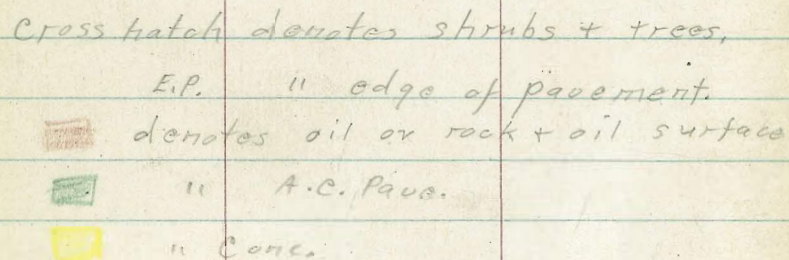 Cross hatch denotes shrubs + trees.
E.P. " edge of pavement.
denotes oil or rock + oil surface
" A.C. Pave.
" Conc.